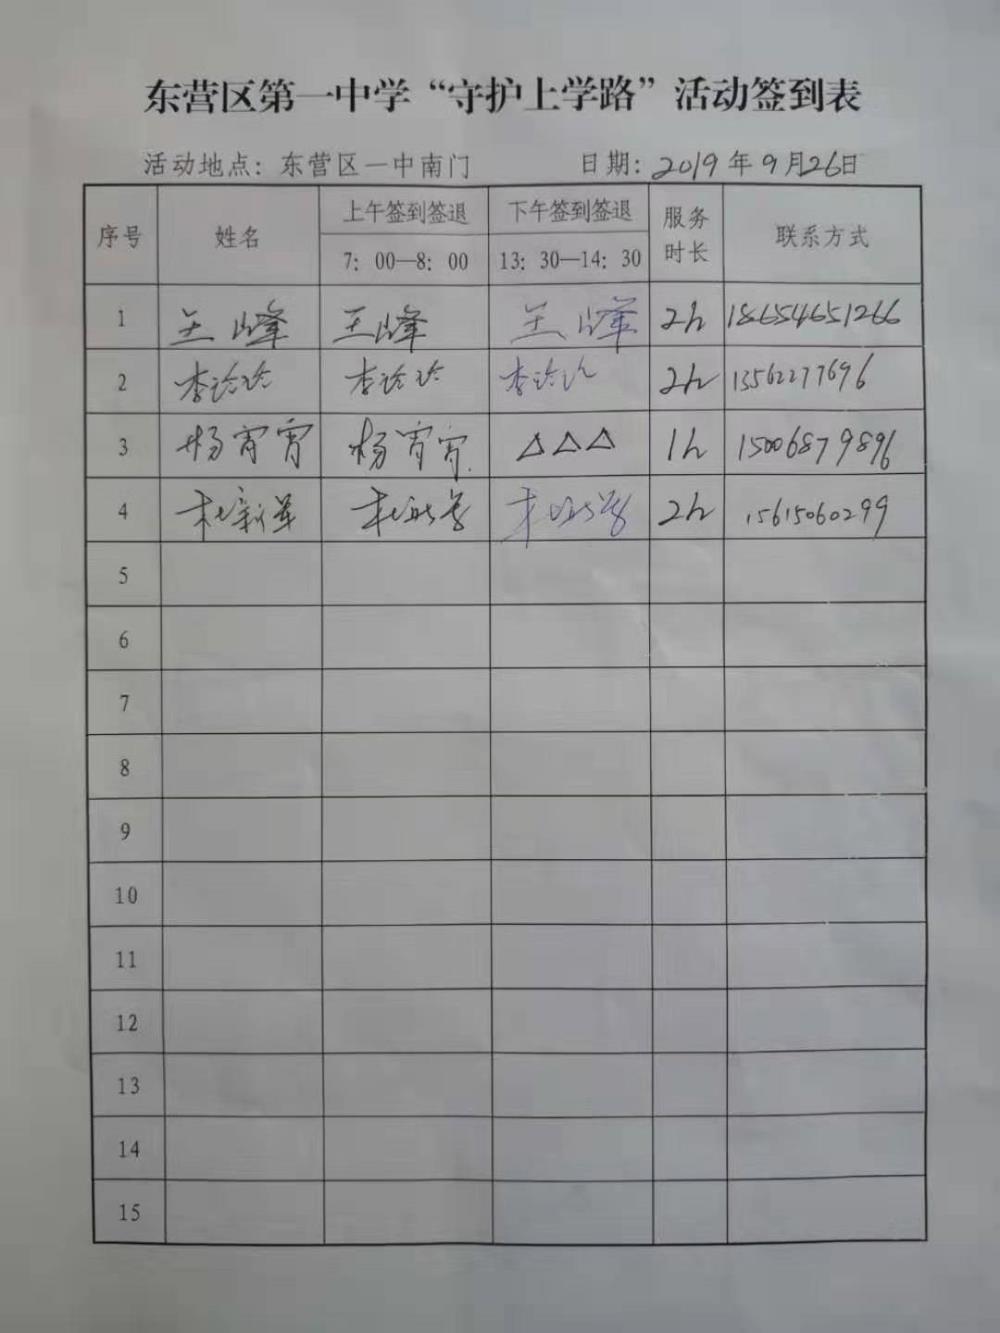 东营区第一中学“守护上学路”活动签到表
活动地点：东营区一中南门 日期：2019年9月26日
序号 姓名 上午签到签退 7：00—8：00 下午签到签退 13：30—14：30 服务时长 联系方式
1 王峰 王峰 王峰 2h 18654651266
2 李玲玲 李玲玲 李玲玲 2h 13562277696
3 杨宵宵 杨宵宵 △△△ 1h 15006879896
4 杜新军 杜新军 杜新军 2h 15615060299
5
6
7
8
9
10
11
12
13
14
15